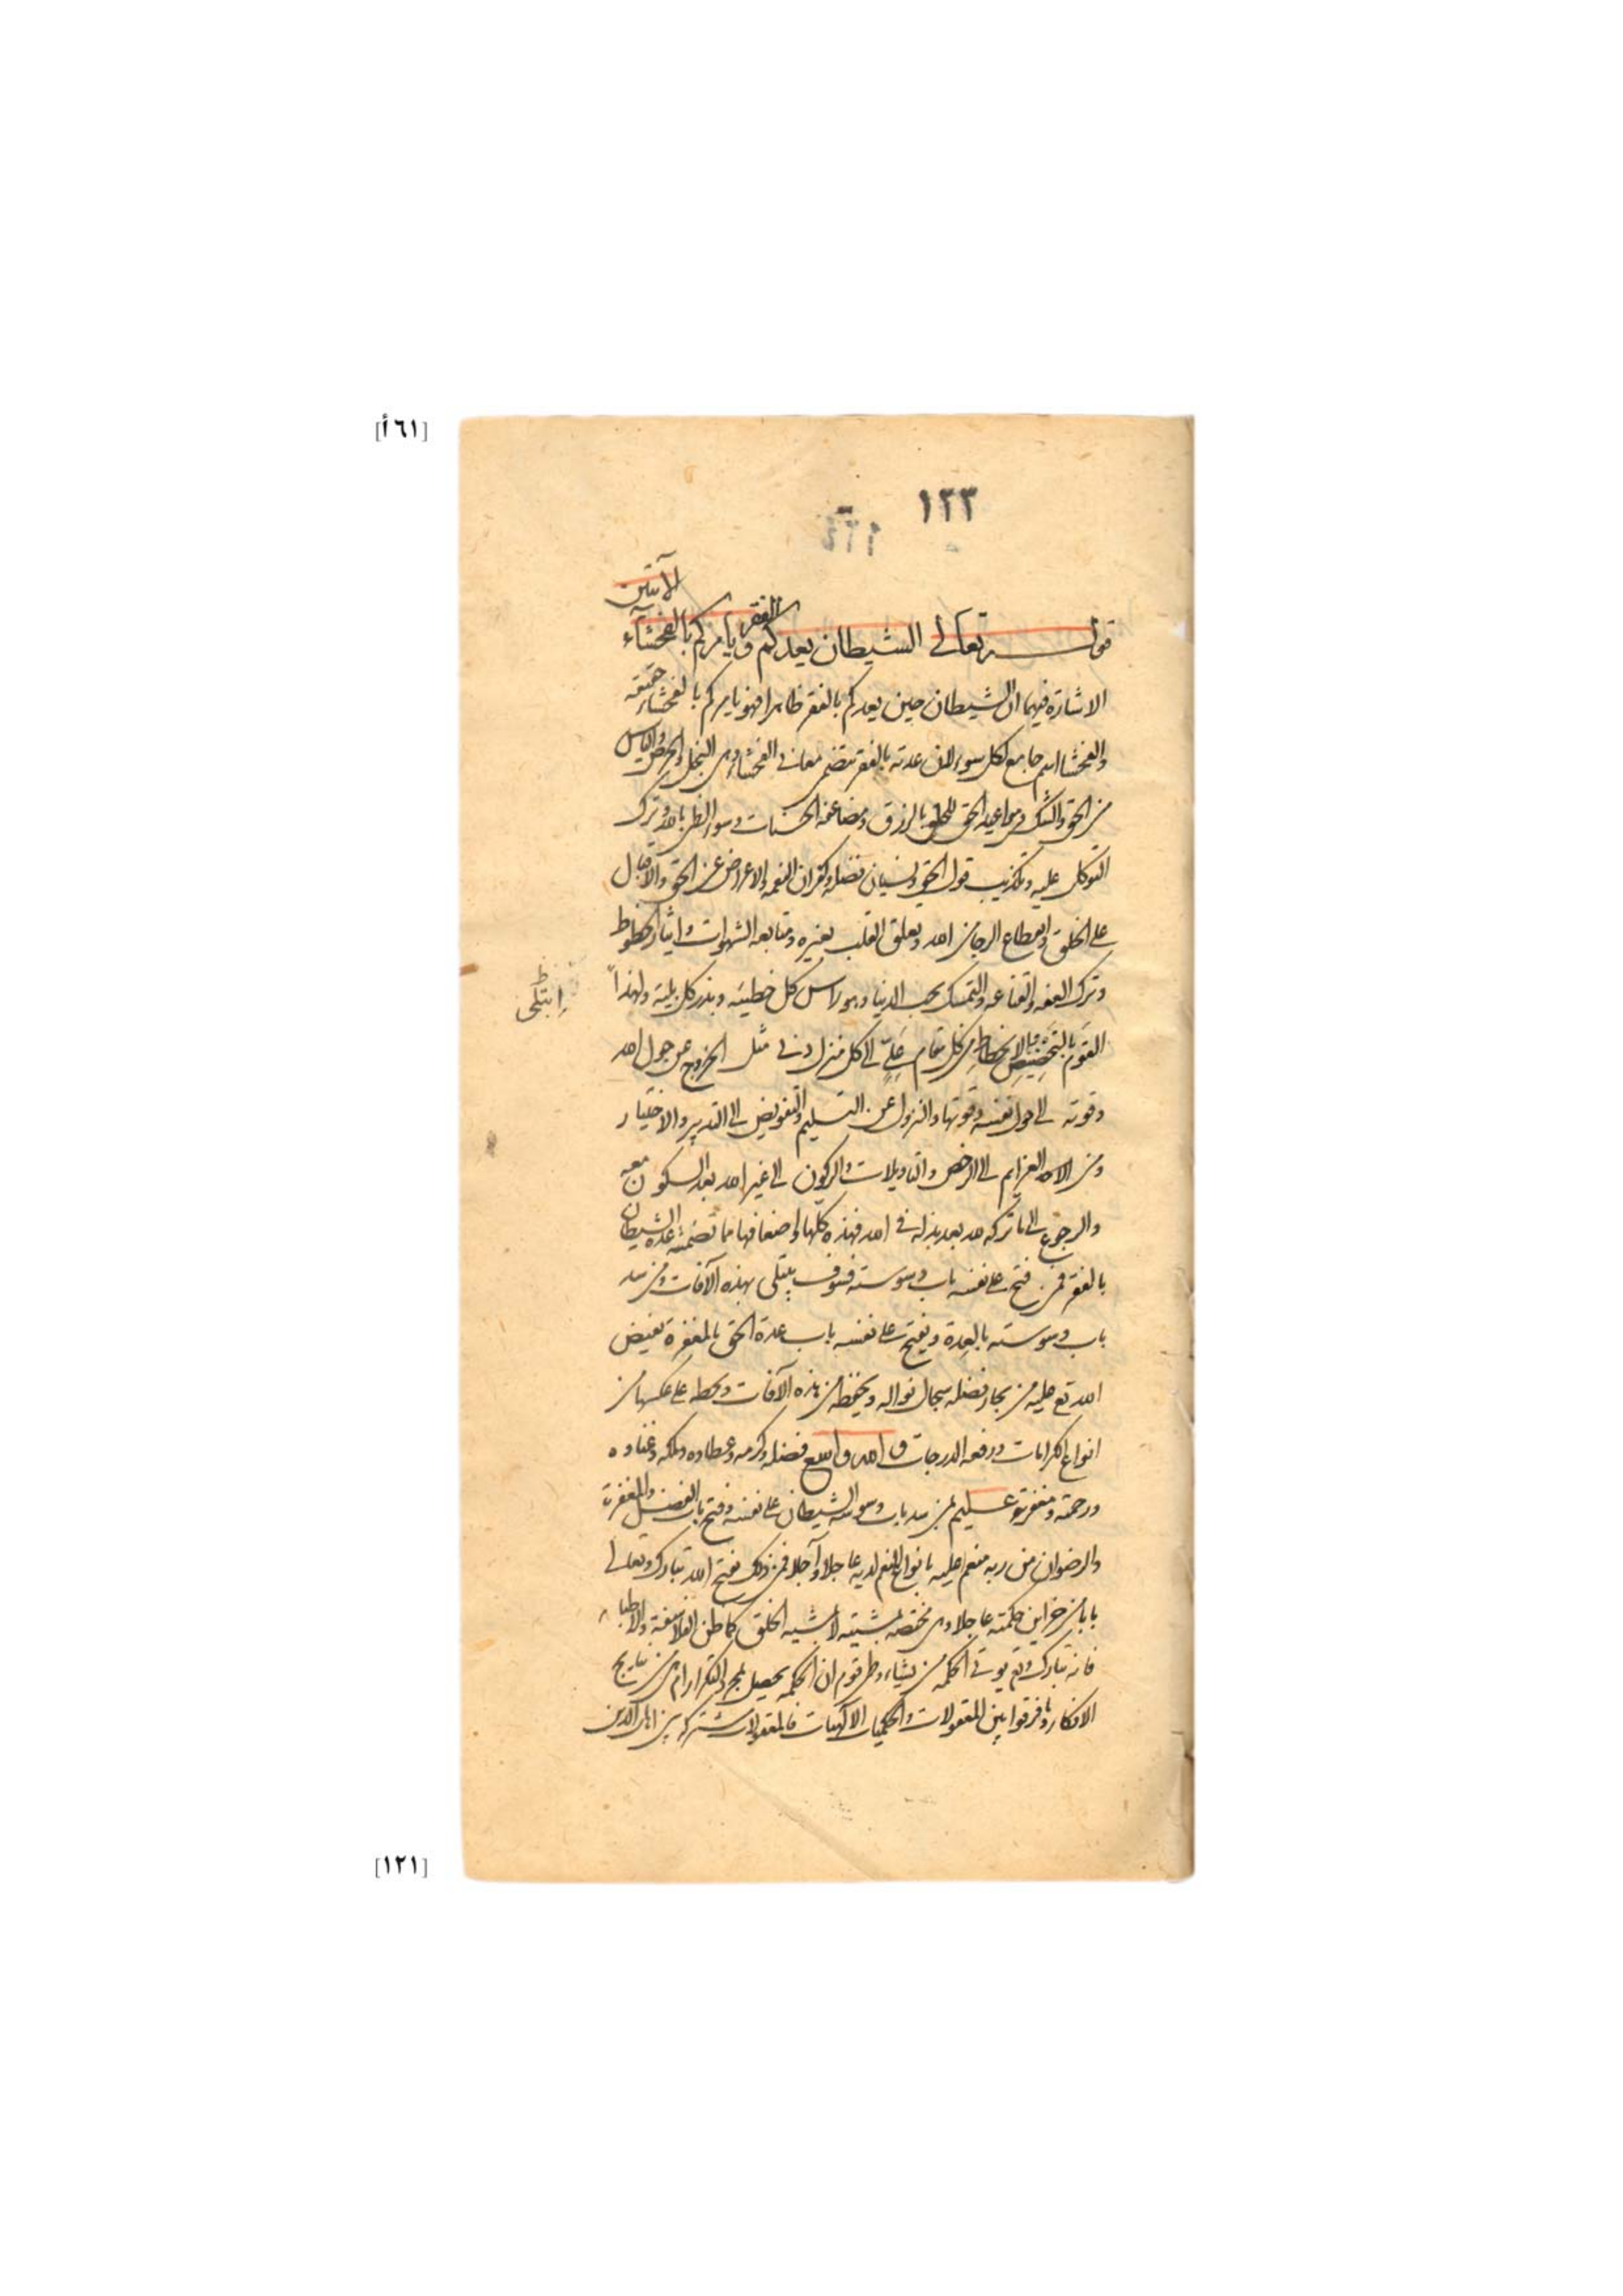 [٦١أ]
١٢٣
الآيتين
قوله تعالى الشيطان يعدكم الفقر ويأمركم بالفحشاء
الاشارة فيهما ان الشيطان حين يعدكم بالفقر ظاهرا فهو يامركم بالفحشاء حقيقة
والفحشا اسم جامع لكل سوء لان عدته بالفقر يتضمن معانى الفحشاء وهى البخل والحرص والياس
من الحق والشك فى مواعيد الحق للخلق بالرزق ومضاعفة الحسنات وسوء الظن بالله وترك
التوكل عليه وتكذيب قول الحق ونسيان فضله وكفران النعمة والاعراض عن الحق والاقبال
على الخلق وانقطاع الرجا من الله وتعلق القلب بغيره ومتابعة الشهوات وايثار الحظوظ
وترك العفة والقناعة والتمسك بحب الدنيا وهو راس كل خطيئة وبذر كل بلية ولهذا
ابتلى
القوم بالانحطاط من كل مقام على الى كل منزل دنى مثل الخروج عن حول الله
وقوته الى حول نفسه وقوتها والنزول عن التسليم والتفويض الى التدبير والاختيار
ومن العزايم الى الرخص والتاويلات والركون الى غير الله بعد السكون معه
والرجوع الى ما تركه لله بعد بذله فى الله فهذه كلها واضعافها مما تضمنته عدة الشيطان
بالفقر فمن فتح على نفسه باب وسوسته فسوف يبتلى بهذه الآفات ومن سد
باب وسوسته بالعدة ويفتح على نفسه باب عدة الحق بالمغفرة يفيض
الله تع عليه من بحار فضله سجال نواله ويحفظه من هذه الآفات ويحطه على عكسها من
انواع الكرامات ورفعة الدرجات والله واسع فضله وكرمه وعطاوه وملكه وغناوه
ورحمته ومغفرته عليم لمن سد باب وسوسة الشيطان على نفسه وفتح باب الفضل والمغفرة
والرضوان من ربه منعم عليه بانواع النعم لديه عاجلا وآجلا فمن ذلك يفتح الله تبارك وتعالى
بابا من خزاين حكمته عاجلا وهى مختصة بمشيته لا بمشية الخلق كما ظن الفلاسفة والاطباء
فانه تبارك وتع يوتى الحكمة من يشاء وظن قوم ان الحكمة يحصل بمجرد التكرار ام هى من نتايج
الافكار وما فرقوا بين المعقولات والحكميات الالهيات فالمعقولات مشتركة بين اهل الدين
[١٢١]